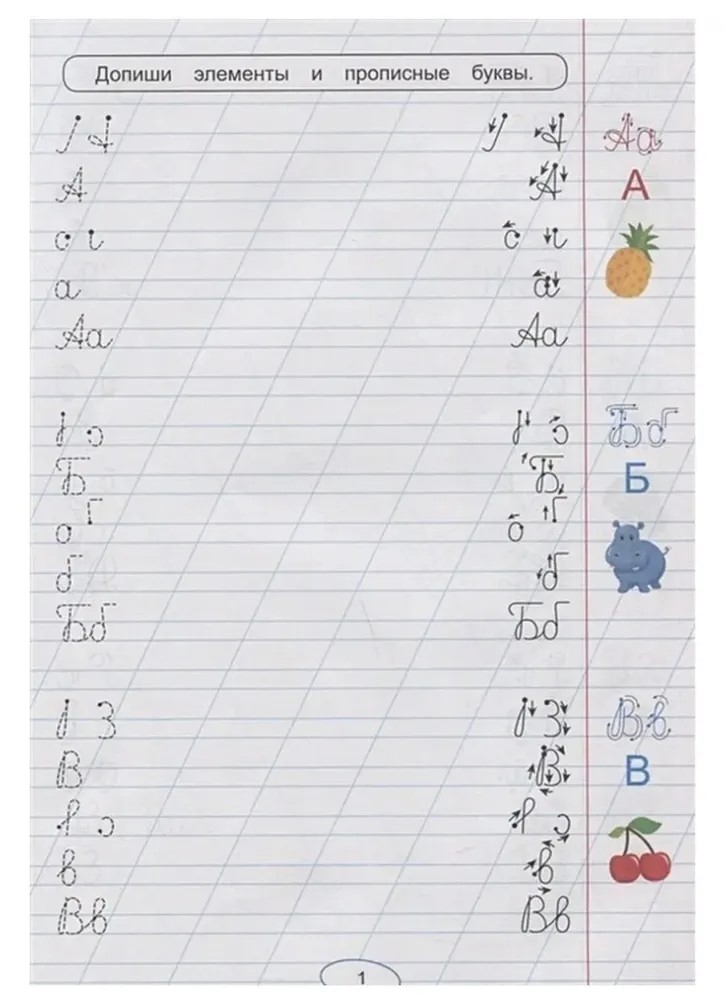 Допиши элементы и прописные буквы.
Аа
А А А
а а
Аа Аа
Бб
Б Б Б
б б
Бб Бб
Вв
В В В
в в
Вв Вв
1